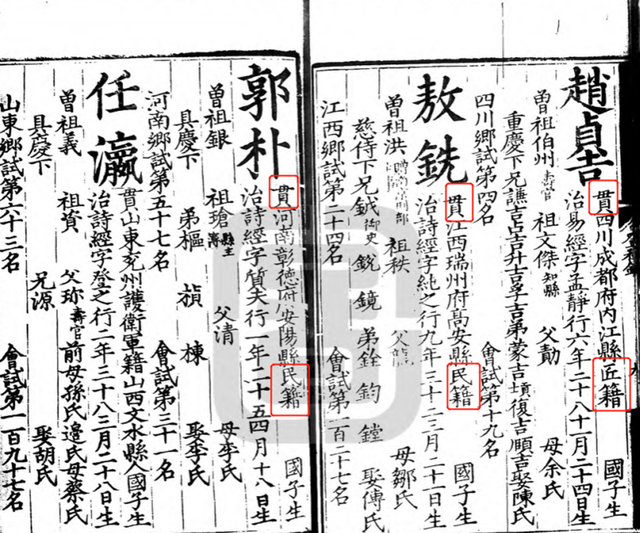 趙貞吉
貫四川成都府內江縣匠籍
國子生
治易經字孟靜行六年二十八十一月二十四日生
曾祖伯州壽官
祖文傑知縣
父勳
母余氏
重慶下兄譙吉占吉升吉孚吉弟蒙吉頤復吉順吉娶陳氏
四川鄉試第四名
會試第十九名
敖銑
貫江西瑞州府高安縣民籍
國子生
治詩經字純之行九年三十二三月二十一日生
曾祖洪
祖秩
父龍
母鄒氏
慈侍下兄鉞御史
銳
鏡
弟銓
鈞
鏜
娶傅氏
江西鄉試第二十四名
會試第一百二十七名
郭朴
貫河南彰德府安陽縣民籍
國子生
治詩經字質夫行一年二十五四月十八日生
曾祖銀
祖瑄縣主簿
父清
母李氏
具慶下
弟樞
楨
棟
娶李氏
河南鄉試第五十七名
會試第三十一名
任瀛
貫山東兗州護衛軍籍山西文水縣人國子生
治詩經字登之行二年三十八三月二十八日生
曾祖義
祖資
父珎壽官
前母孫氏邉氏母蔡氏
具慶下
兄源
娶胡氏
山東鄉試第六十三名
會試第一百九十七名